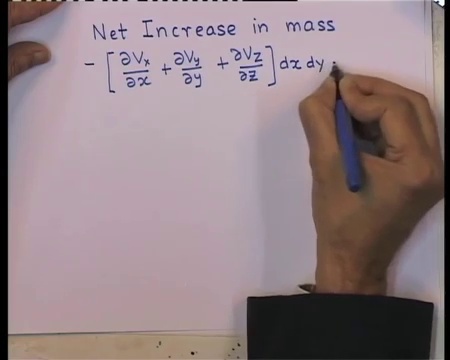 Net Increase in mass
- [∂Vx/∂x + ∂Vy/∂y + ∂Vz/∂z] dx dy